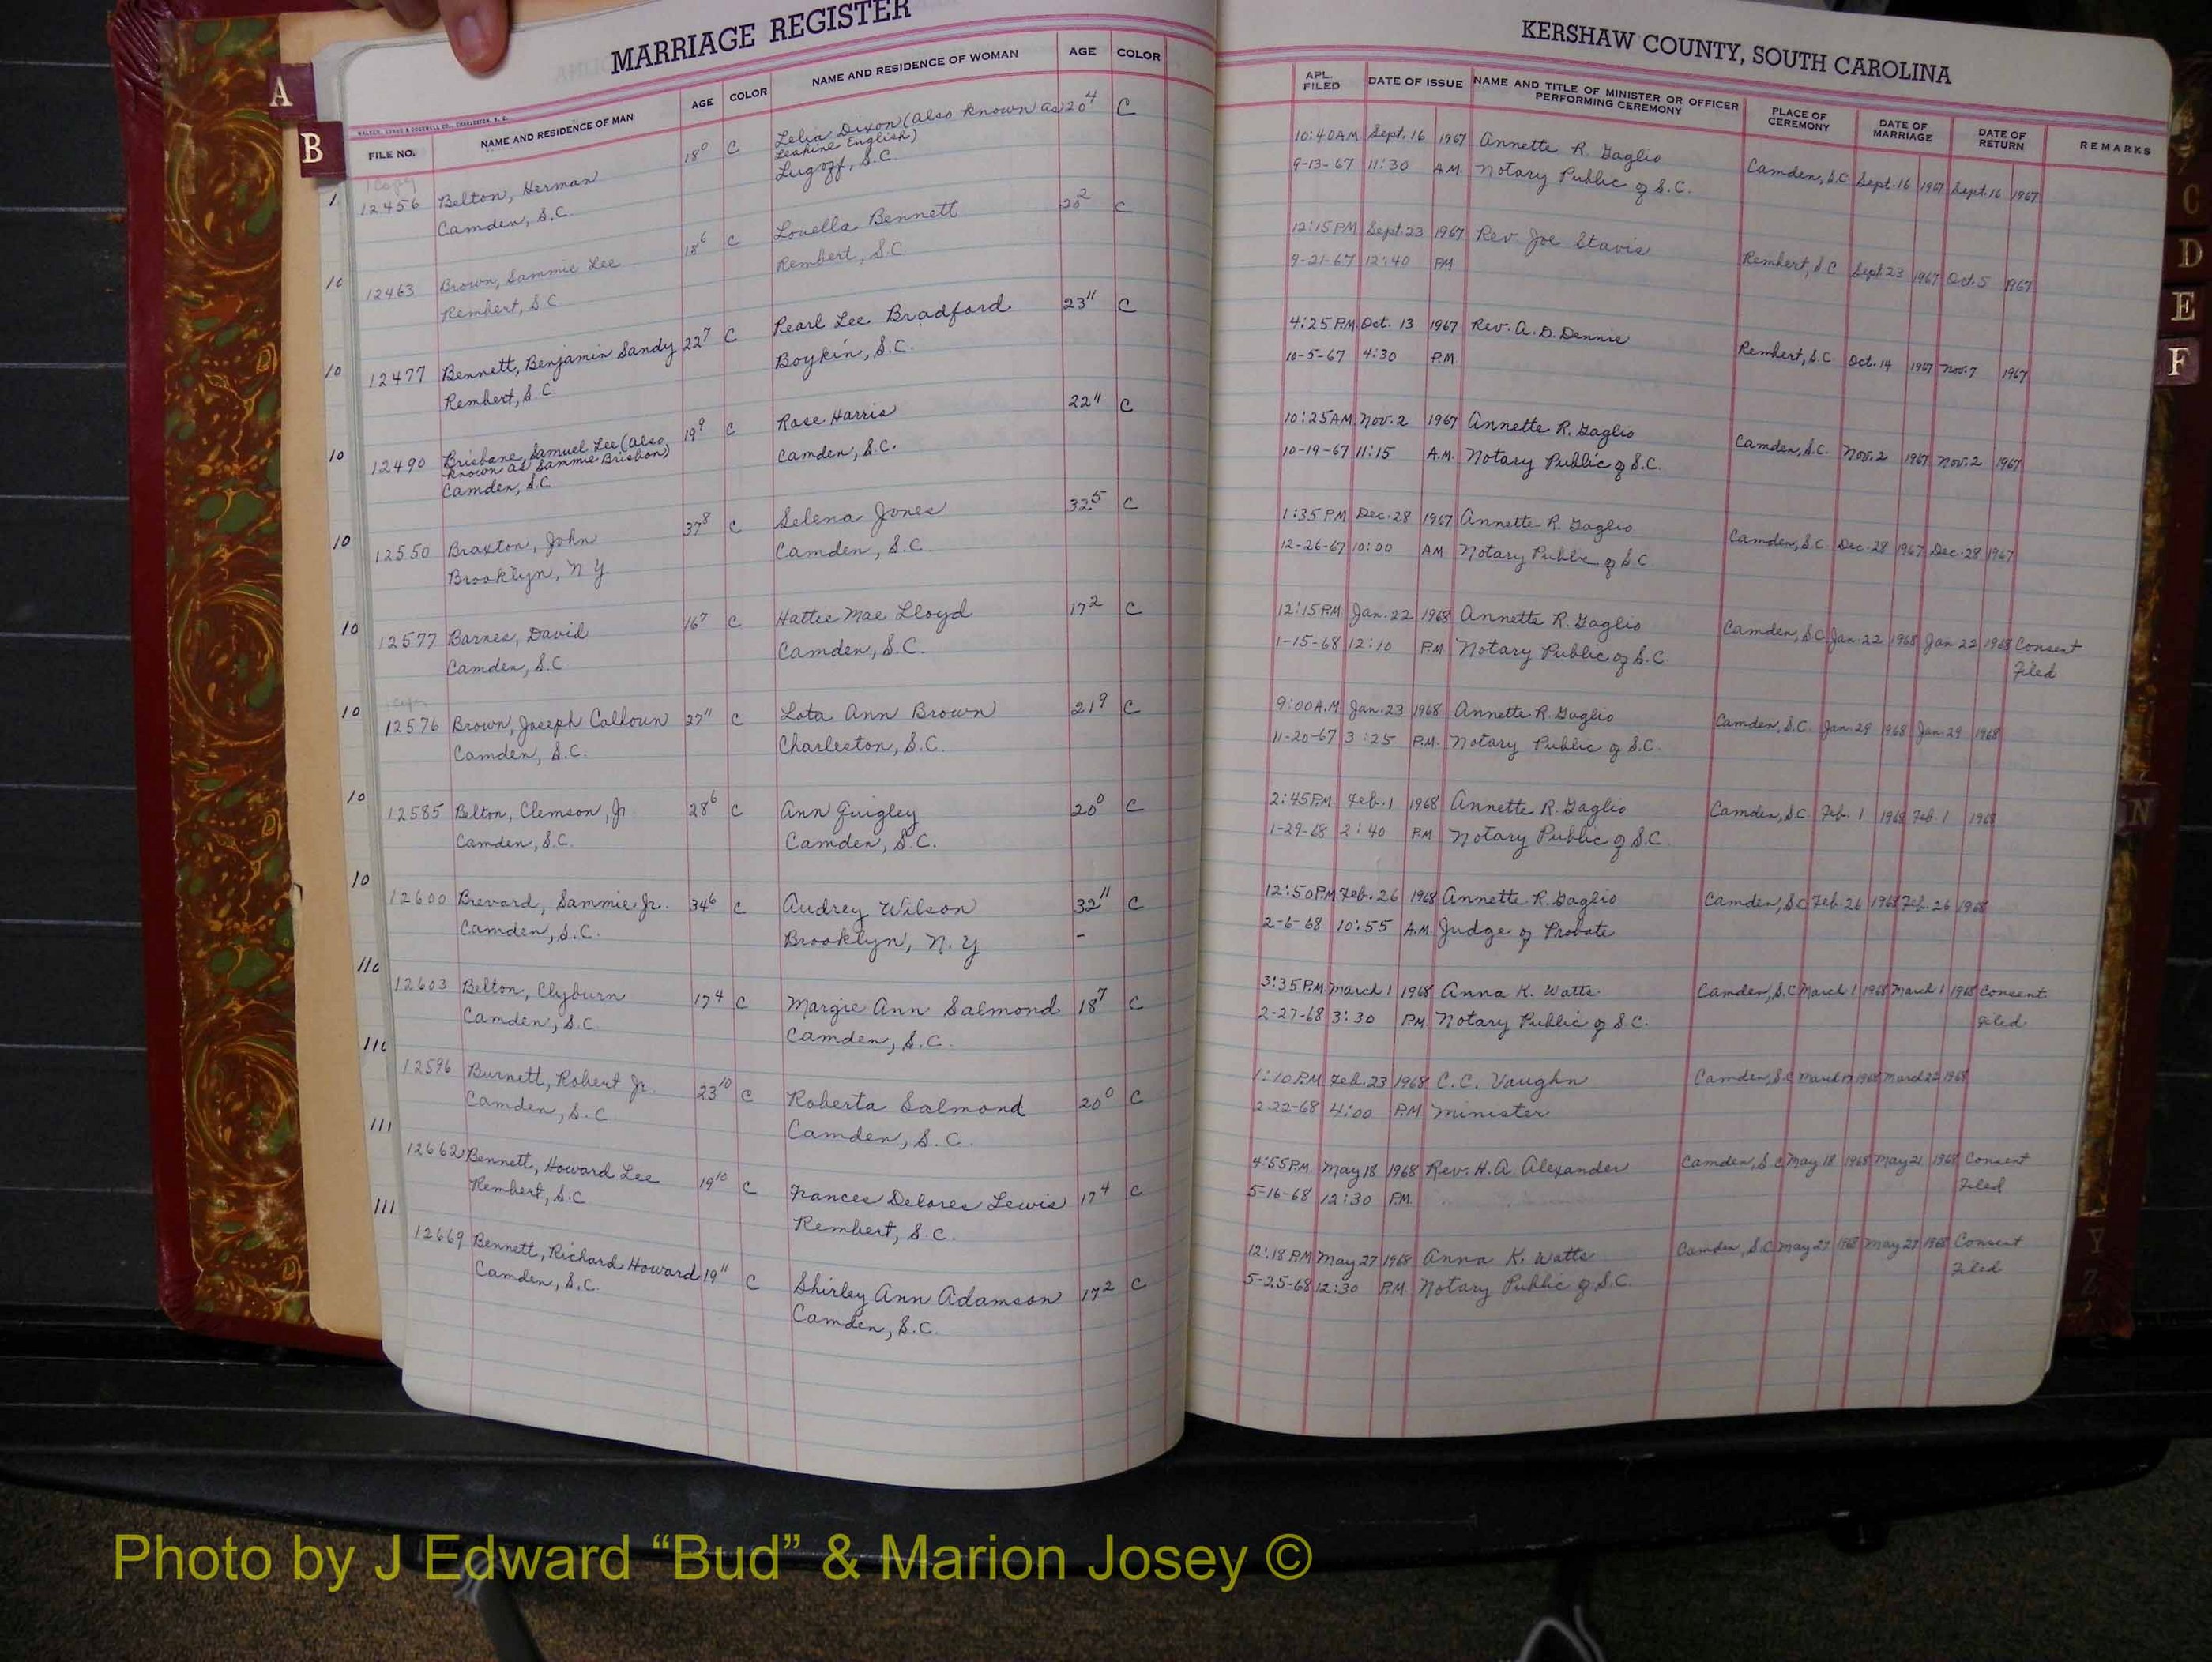 MARRIAGE REGISTER
KERSHAW COUNTY, SOUTH CAROLINA
A
B
C
D
E
F
N
Y
Z
WALKER, EVANS & COGSWELL CO., CHARLESTON, S. C.
FILE NO. NAME AND RESIDENCE OF MAN AGE COLOR NAME AND RESIDENCE OF WOMAN AGE COLOR
APL. FILED DATE OF ISSUE NAME AND TITLE OF MINISTER OR OFFICER PERFORMING CEREMONY PLACE OF CEREMONY DATE OF MARRIAGE DATE OF RETURN REMARKS
1 copy
12456 Belton, Herman 18⁰ C Lelia Dixon (also known as 20⁴ C
Leahine English)
Camden, S.C. Lugoff, S.C.
10:40 A.M. Sept. 16 1967 Annette R. Gaglio Camden, S.C. Sept. 16 1967 Sept. 16 1967
9-13-67 11:30 A.M. Notary Public of S.C.
12463 Brown, Sammie Lee 18⁶ C Louella Bennett 20² C
Rembert, S.C. Rembert, S.C
12:15 PM Sept. 23 1967 Rev. Joe Stavis Rembert, S.C Sept. 23 1967 Oct. 5 1967
9-21-67 12:40 PM
12477 Bennett, Benjamin Sandy 22⁷ C Pearl Lee Bradford 23¹¹ C
Rembert, S.C. Boykin, S.C.
4:25 P.M. Oct. 13 1967 Rev. A. D. Dennis Rembert, S.C. Oct. 14 1967 Nov. 7 1967
10-5-67 4:30 P.M.
12490 Brisbane, Samuel Lee (also 19⁹ C Rose Harris 22¹¹ C
known as Sammie Brisbon)
Camden, S.C. Camden, S.C.
10:25 A.M. Nov. 2 1967 Annette R. Gaglio Camden, S.C. Nov. 2 1967 Nov. 2 1967
10-19-67 11:15 A.M. Notary Public of S.C.
12550 Braxton, John 37⁸ C Selena Jones 32⁵ C
Brooklyn, N Y Camden, S.C.
1:35 P.M. Dec. 28 1967 Annette R. Gaglio Camden, S.C. Dec. 28 1967 Dec. 28 1967
12-26-67 10:00 AM Notary Public of S.C.
12577 Barnes, David 16⁷ C Hattie Mae Lloyd 17² C
Camden, S.C. Camden, S.C.
12:15 P.M. Jan. 22 1968 Annette R. Gaglio Camden, S.C. Jan. 22 1968 Jan 22 1968 Consent
1-15-68 12:10 P.M Notary Public of S.C. Filed
12576 Brown, Joseph Calhoun 27¹¹ C Lota Ann Brown 21⁹ C
Camden, S.C. Charleston, S.C.
9:00 A.M. Jan. 23 1968 Annette R. Gaglio Camden, S.C. Jan. 29 1968 Jan. 29 1968
11-20-67 3:25 P.M. Notary Public of S.C.
12585 Belton, Clemson, Jr. 28⁶ C Ann Quigley 20⁰ C
Camden, S.C. Camden, S.C.
2:45 P.M. Feb. 1 1968 Annette R. Gaglio Camden, S.C. Feb. 1 1968 Feb. 1 1968
1-29-68 2:40 P.M Notary Public of S.C
12600 Brevard, Sammie Jr. 34⁶ C Audrey Wilson 32¹¹ C
Camden, S.C. Brooklyn, N. Y -
12:50 P.M. Feb. 26 1968 Annette R. Gaglio Camden, S.C Feb. 26 1968 Feb. 26 1968
2-6-68 10:55 A.M. Judge of Probate
12603 Belton, Clyburn 17⁴ C Margie Ann Salmond 18⁷ C
Camden, S.C. Camden, S.C.
3:35 P.M. March 1 1968 Anna K. Watts Camden, S.C March 1 1968 March 1 1968 Consent
2-27-68 3:30 P.M. Notary Public of S.C. Filed
12596 Burnett, Robert Jr. 23¹⁰ C Roberta Salmond 20⁰ C
Camden, S.C. Camden, S.C.
1:10 P.M. Feb. 23 1968 C. C. Vaughn Camden, S.C March 1968 March 22 1968
2-22-68 4:00 P.M Minister
12662 Bennett, Howard Lee 19¹⁰ C Frances Delores Lewis 17⁴ C
Rembert, S.C Rembert, S.C.
4:55 P.M. May 18 1968 Rev. H. A. Alexander Camden, S.C May 18 1968 May 21 1968 Consent
5-16-68 12:30 P.M. Filed
12669 Bennett, Richard Howard 19¹¹ C Shirley Ann Adamson 17² C
Camden, S.C. Camden, S.C.
12:18 P.M May 27 1968 Anna K. Watts Camden, S.C May 27 1968 May 27 1968 Consent
5-25-68 12:30 P.M. Notary Public of S.C. Filed
Photo by J Edward “Bud” & Marion Josey ©